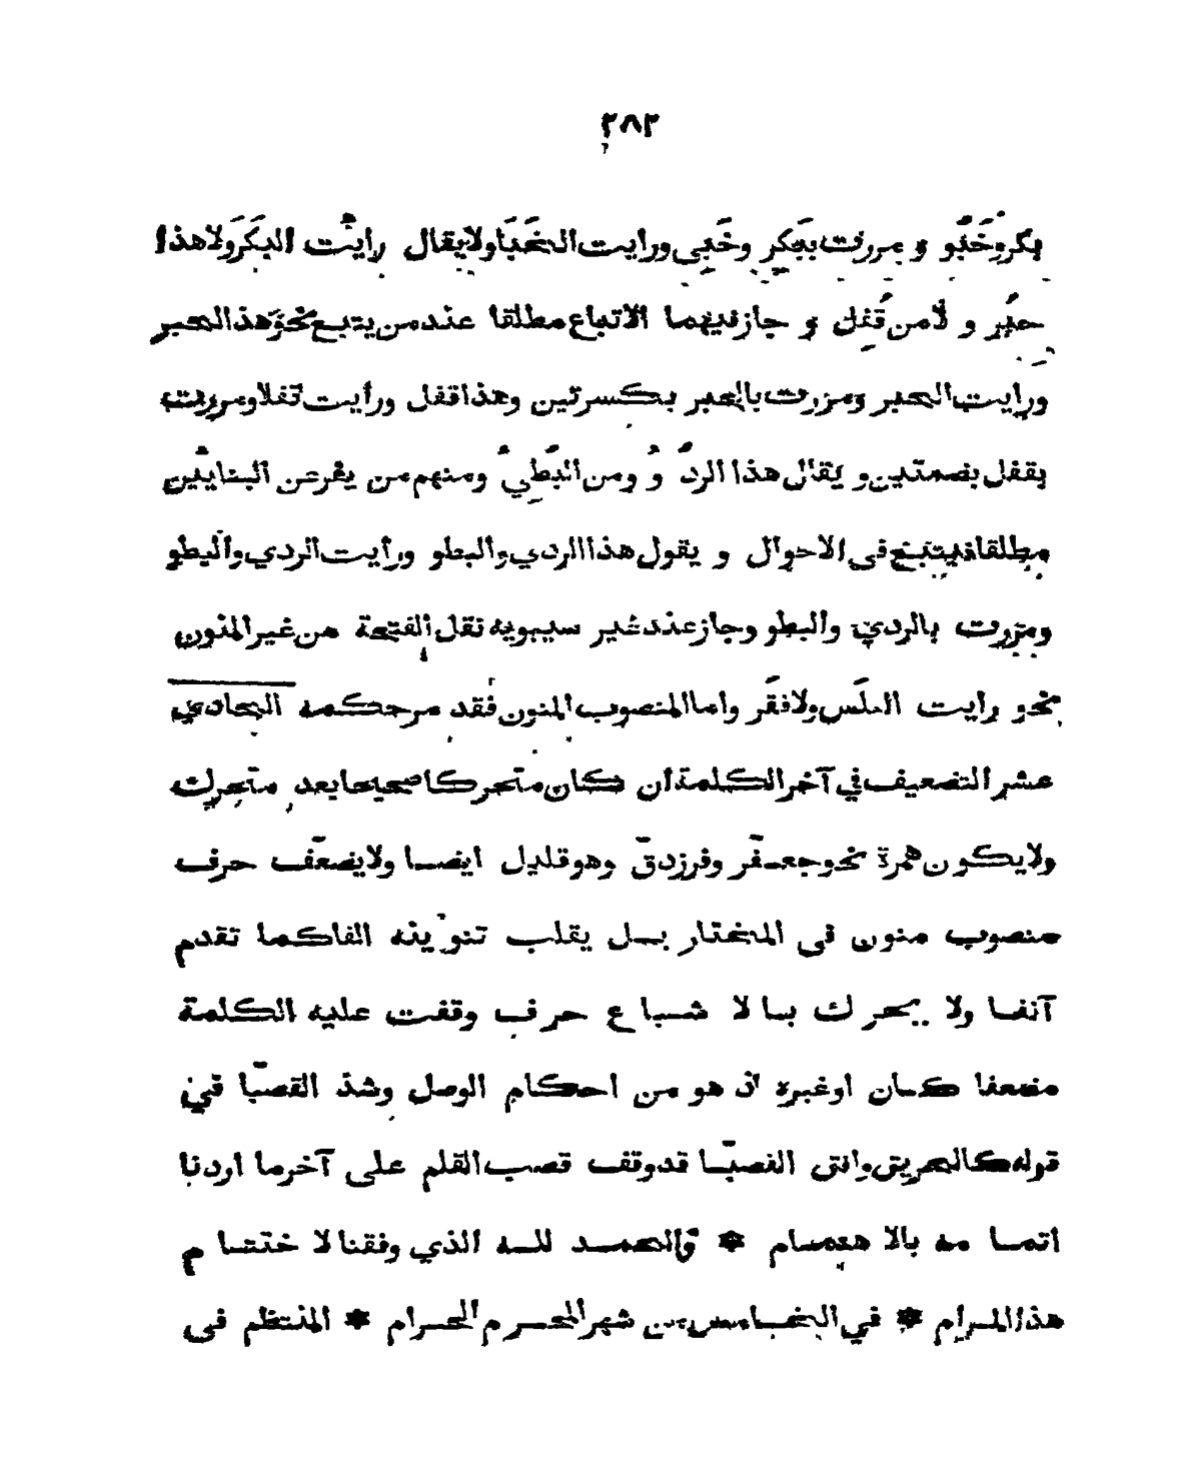 ٢٨٢
بكرو خَبُو و مررت ببَكِر وخَبِى ورايت الخَبَا ولايقال رايت البكَر ولا هذا
حبُر و لا من قُفِل و جاز فيهما الاتباع مطلقا عند من يتبع نحو هذا الحبر
ورايت الحبر ومررت بالحبر بكسرتين وهذا قفل ورأيت قفلا ومررت
بقفل بضمتين و يقال هذا الردُو ومن البُطِي ومنهم من يفر عن البنايين
مطلقا فيتبع فى الاحوال و يقول هذا الردي والبطو ورأيت الردي والبطو
ومررت بالردي والبطو وجاز عند غير سيبويه نقل الفتحة من غير المنون
نحو رايت الفلَس ولا فقَر واما المنصوب المنون فقد مر حكمه الحادي
عشر التضعيف في آخر الكلمة ان كان متحركا صحيحا بعد متحرك
ولايكون همزة نحو جعفرّ وفرزدقّ وهو قليل ايضا ولا يضعّف حرف
منصوب منون فى المختار بل يقلب تنوينه الفا كما تقدم
آنفا ولا يحرك بالا شباع حرف وقفت عليه الكلمة
مضعفا كان اوغيره اذ هو من احكام الوصل وشذ القصبّا في
قوله كالحريق وافق القصبّا قدوقف قصب القلم على آخرما اردنا
اتما مه بالا هتمام * والحمد لله الذي وفقنا لا ختتا م
هذا المرام * في الخامس من شهر المحرم الحرام * المنتظم فى